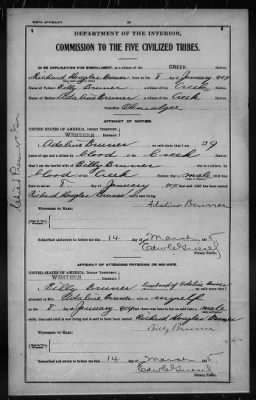 DEPARTMENT OF THE INTERIOR,
COMMISSION TO THE FIVE CIVILIZED TRIBES.
IN RE APPLICATION FOR ENROLLMENT, as a citizen of the CREEK Nation,
of Richard Douglas Bruner, born on the 8 day of January, 190
Name of Father: Billy Bruner a citizen of the Creek Nation.
Name of Mother: Adaline Bruner a citizen of the Creek Nation.
Postoffice Okmulgee
AFFIDAVIT OF MOTHER.
UNITED STATES OF AMERICA, INDIAN TERRITORY,
WESTERN DISTRICT.
I, Adaline Bruner, on oath state that I am 39
years of age and a citizen by blood, of the Creek Nation;
that I am the lawful wife of Billy Bruner, who is a citizen, by
blood of the Creek Nation; that a male child was
born to me on 8 day of January, 190; that said child has been named
Richard Douglas Bruner, and is now living.
Adaline Bruner
Subscribed and sworn to before me this 14 day of March, 190
Notary Public.
AFFIDAVIT OF ATTENDING PHYSICIAN, OR MID-WIFE.
UNITED STATES OF AMERICA, INDIAN TERRITORY,
WESTERN DISTRICT.
I, Billy Bruner, husband of Adaline Bruner, on oath state that I
attended on Mrs. Adaline Bruner, wife of myself
on the 8 day of January, 190; that there was born to her on said date a male
child; that said child is now living and is said to have been named Richard Douglas Bruner
Billy Bruner
Subscribed and sworn to before me this 14 day of March, 190
Notary Public.